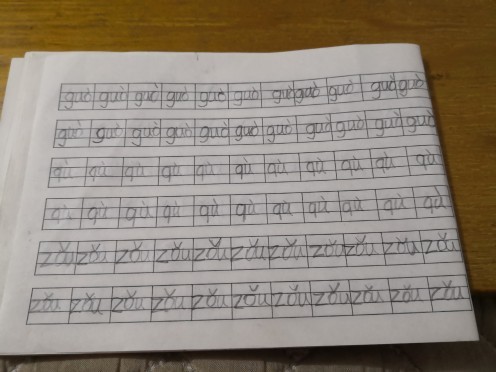 guò guò guò guò guò guò guò guò guò guò guò
guò guò guò guò guò guò guò guò guò guò guò
qù qù qù qù qù qù qù qù qù qù qù
qù qù qù qù qù qù qù qù qù qù qù
zǒu zǒu zǒu zǒu zǒu zǒu zǒu zǒu zǒu zǒu zǒu
zǒu zǒu zǒu zǒu zǒu zǒu zǒu zǒu zǒu zǒu zǒu